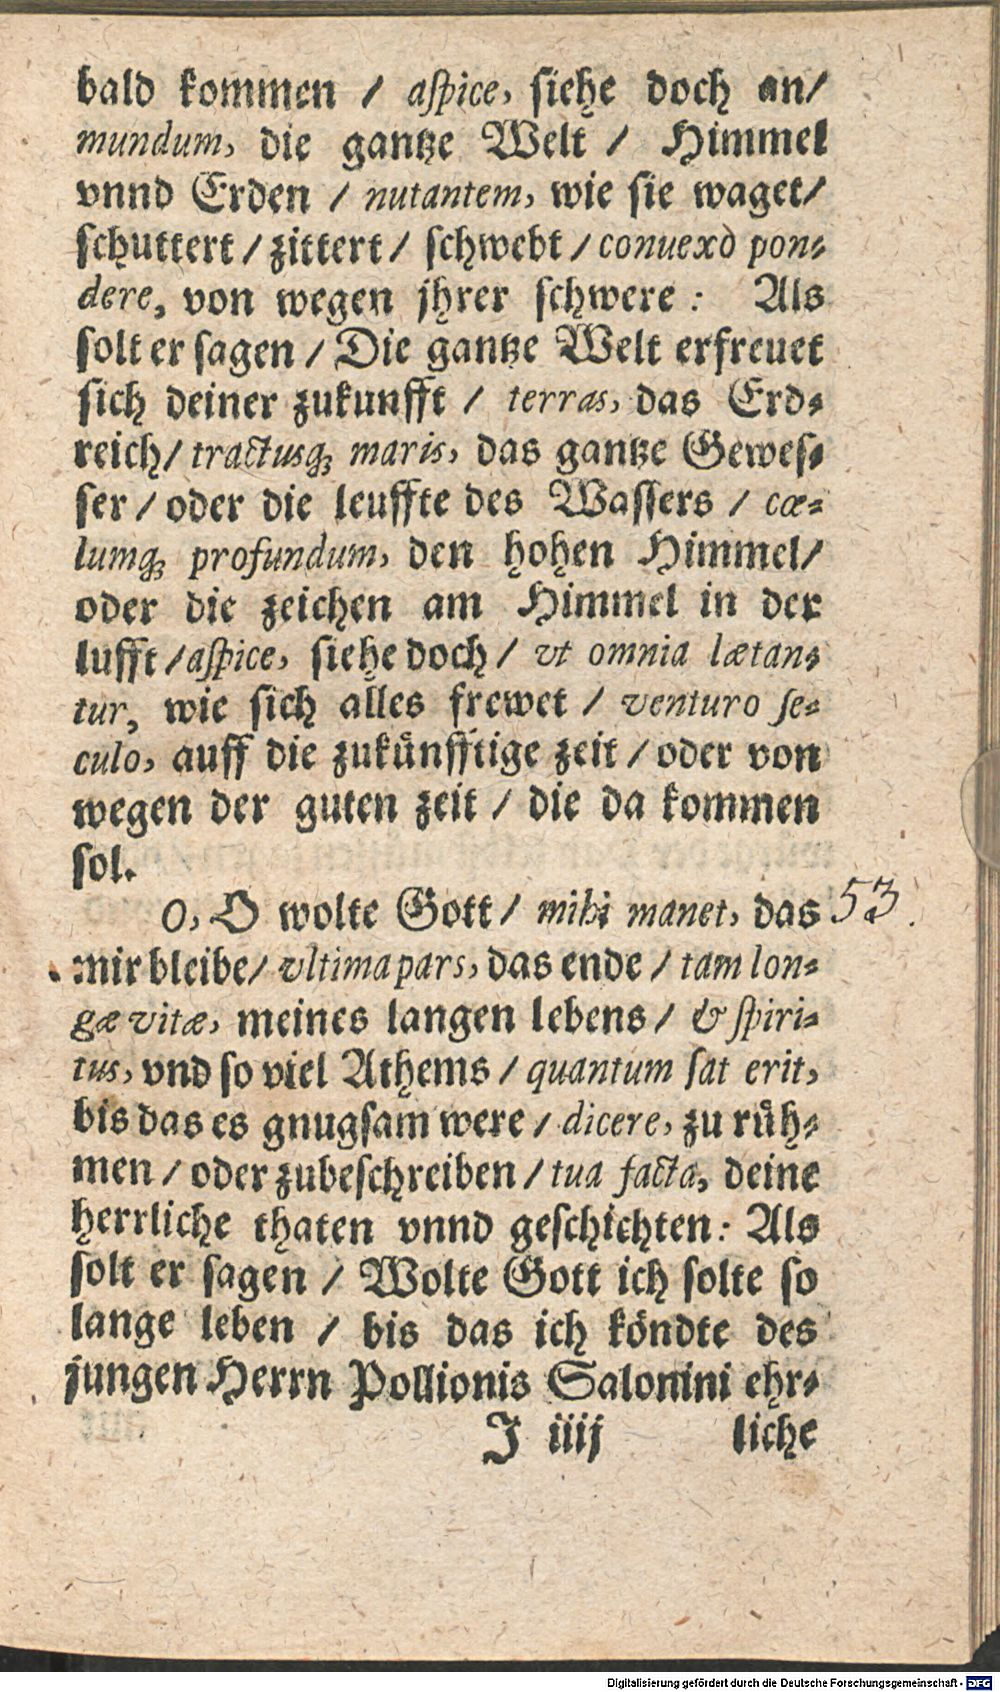 bald kommen / aſpice, ſiehe doch an/
mundum, die gantze Welt / Himmel
vnnd Erden / nutantem, wie ſie waget/
ſchuttert / zittert / ſchwebt / conuexo pon⸗
dere, von wegen jhrer ſchwere : Als
ſolt er ſagen / Die gantze Welt erfreuet
ſich deiner zukunfft / terras, das Erd⸗
reich/ tractusq; maris, das gantze Geweſ⸗
ſer / oder die leuffte des Waſſers / cæ⸗
lumq; profundum, den hohen Himmel/
oder die zeichen am Himmel in der
lufft /aſpice, ſiehe doch / vt omnia lætan⸗
tur, wie ſich alles frewet / venturo ſe⸗
culo, auff die zukuͤnfftige zeit / oder von
wegen der guten zeit / die da kommen
ſol.
O, O wolte Gott / mihi manet, das 53
mir bleibe/ vltima pars, das ende / tam lon⸗
gæ vitæ, meines langen lebens / & ſpiri⸗
tus, vnd ſo viel Athems / quantum ſat erit,
bis das es gnugſam were / dicere, zu ruͤh⸗
men / oder zubeſchreiben / tua facta, deine
herrliche thaten vnnd geſchichten : Als
ſolt er ſagen / Wolte Gott ich ſolte ſo
lange leben / bis das ich koͤndte des
jungen Herrn Pollionis Salonini ehr⸗
J iiij liche
Digitalisierung gefördert durch die Deutsche Forschungsgemeinschaft - DFG